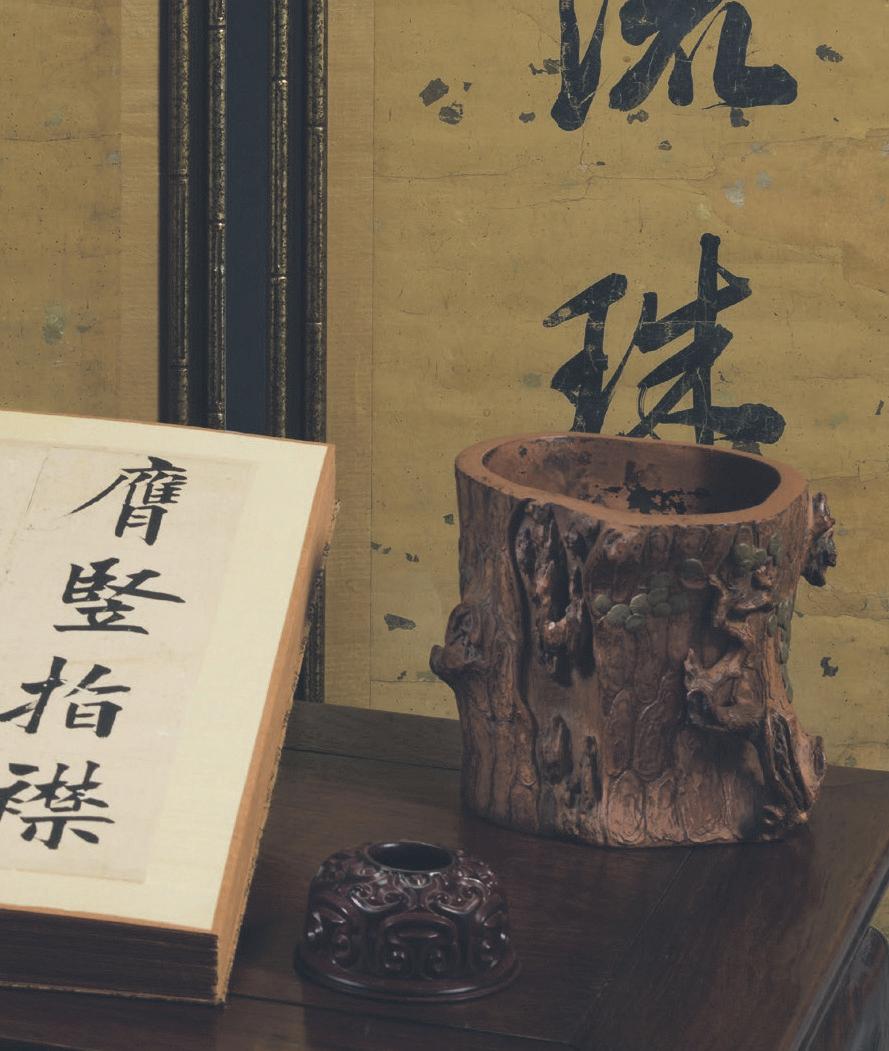 流
珠
膺
竪
指
襟